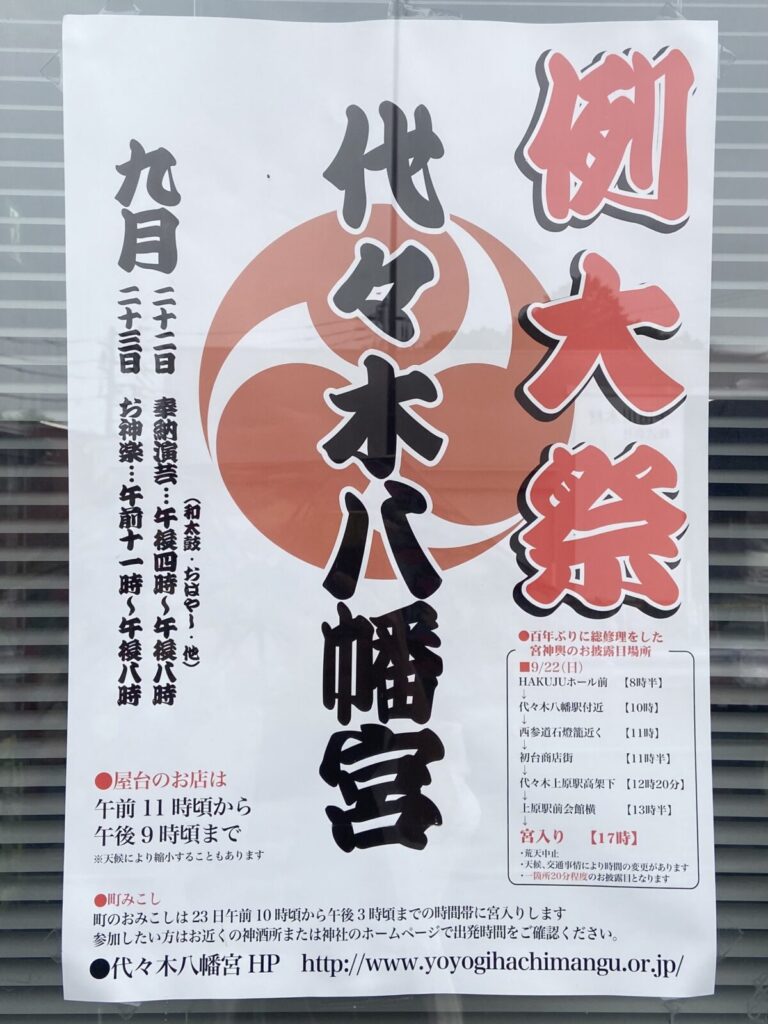 例大祭
代々木八幡宮
九月
二十二日 奉納演芸…午後四時～午後八時
(和太鼓・おはやし・他)
二十三日 お神楽…午前十一時～午後八時
●百年ぶりに総修理をした
宮神輿のお披露目場所
■9/22(日)
HAKUJUホール前 【8時半】
↓
代々木八幡駅付近 【10時】
↓
西参道石燈籠近く 【11時】
↓
初台商店街 【11時半】
↓
代々木上原駅高架下 【12時20分】
↓
上原駅前会館横 【13時半】
↓
宮入り 【17時】
・荒天中止
・天候、交通事情により時間の変更があります
・一箇所20分程度のお披露目となります
●屋台のお店は
午前11時頃から
午後9時頃まで
※天候により縮小することもあります
●町みこし
町のおみこしは23日午前10時頃から午後3時頃までの時間帯に宮入りします
参加したい方はお近くの神酒所または神社のホームページで出発時間をご確認ください。
●代々木八幡宮 HP http://www.yoyogihachimangu.or.jp/